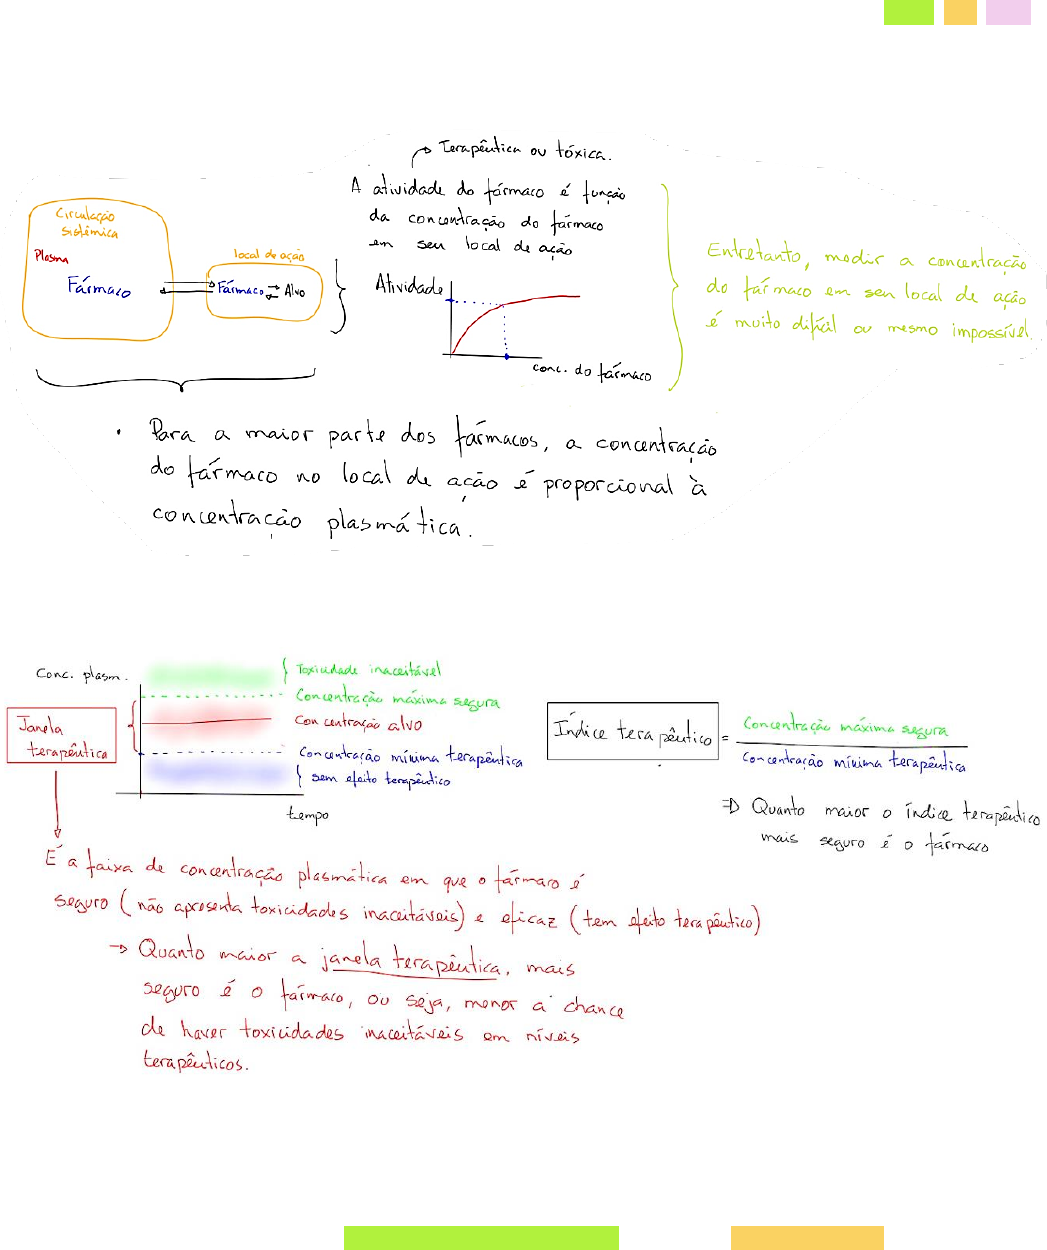 Terapêutica ou tóxica.
A atividade do fármaco é função
da concentração do fármaco
em seu local de ação
Circulação
sistêmica
Plasma
Fármaco
local de ação
Fármaco
Alvo
Atividade
conc. do fármaco
Entretanto, medir a concentração
do fármaco em seu local de ação
é muito difícil ou mesmo impossível.
• Para a maior parte dos fármacos, a concentração
do fármaco no local de ação é proporcional à
concentração plasmática.
Conc. plasm.
Toxicidade inaceitável
Concentração máxima segura
Concentração alvo
Concentração mínima terapêutica
sem efeito terapêutico
tempo
Janela
terapêutica
Índice terapêutico = Concentração máxima segura
Concentração mínima terapêutica
⇒ Quanto maior o índice terapêutico
mais seguro é o fármaco
É a faixa de concentração plasmática em que o fármaco é
seguro (não apresenta toxicidades inaceitáveis) e eficaz (tem efeito terapêutico)
→ Quanto maior a janela terapêutica, mais
seguro é o fármaco, ou seja, menor a chance
de haver toxicidades inaceitáveis em níveis
terapêuticos.